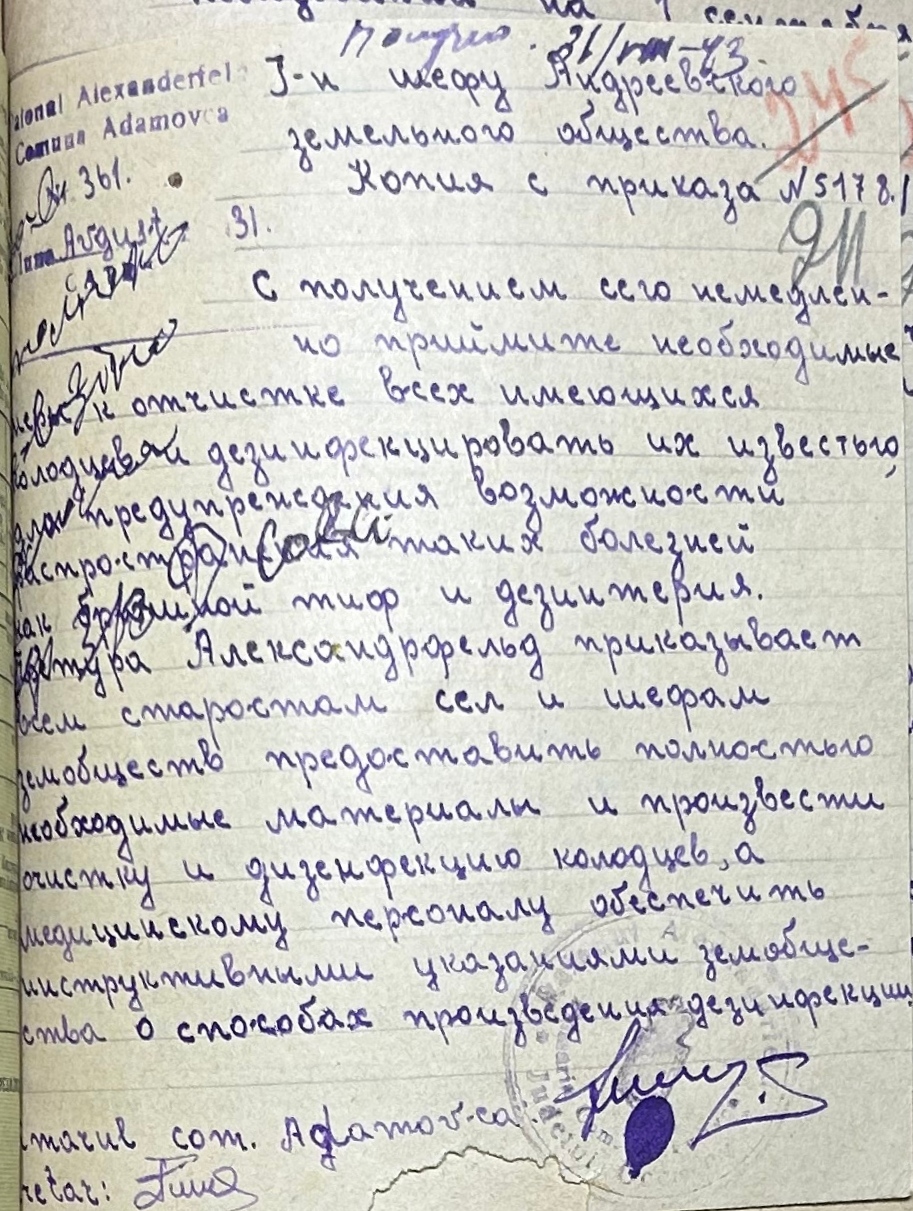 Получено. 31/VIII-43.
Raional Alexanderfeld
Comuna Adamovca
361.
Luna August
31.
245
211
Г-н шефу Андреевского
земельного общества.
Копия с приказа N 5178.
С получением сего немедлен-
но приймите необходимые
к отчистке всех имеющихся
колодцев и дезинфекцировать их известью,
для предупреждения возможности
распространения таких болезней
как брюшной тиф и дезинтерия.
Претура Александрфельд приказывает
всем старостам сел и шефам
земобществ предоставить полностью
необходимые материалы и произвести
очистку и дизенфекцию колодцев, а
медицинскому персоналу обеспечить
инструктивными указаниями земобще-
ства о способах произведения дезинфекции
com. Adamov-ca
retar: